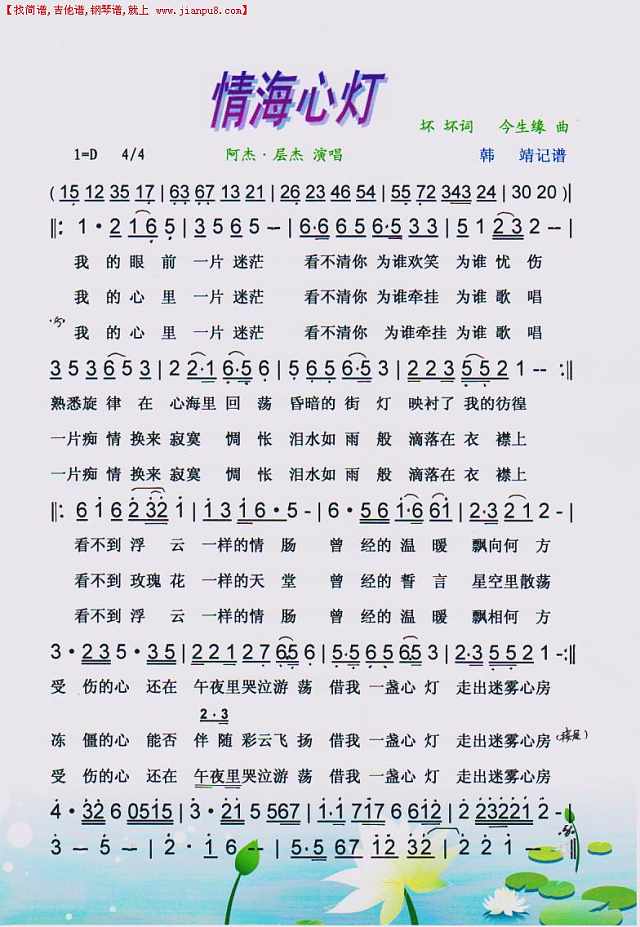 【找简谱,吉他谱,钢琴谱,就上 www.jianpu8.com】
情海心灯
坏 坏词 今生缘 曲
1=D 4/4 阿杰·层杰 演唱 韩 靖记谱
( 15 12 35 17 | 63 67 13 21 | 26 23 46 54 | 55 72 343 24 | 30 20 )|
‖: 1 · 2 1 6 5 | 3 5 6 5 – | 6·6 6 5 6·5 3 | 5 1 2 3 2 – |
我 的 眼 前 一 片 迷茫 看不清你 为谁欢笑 为谁 忧 伤
我 的 心 里 一 片 迷茫 看不清你 为谁牵挂 为谁 歌 唱
我 的 心 里 一 片 迷茫 看不清你 为谁牵挂 为谁 歌 唱
3 5 3 5 6 3 | 2 2·1 6·5 6 | 5 6 5 6·5 3 | 2 2 3 5·5 2 1 -- :‖
熟悉旋 律 在 心海里 回 荡 昏暗的 街 灯 映衬了 我 的彷徨
一片痴 情 换来 寂寞 惆 怅 泪水如 雨 般 滴落在 衣 襟上
一片痴 情 换来 寂寞 惆 怅 泪水如 雨 般 滴落在 衣 襟上
‖: 6 1 6 2 32 1 | 1 3 1 6 · 5 - | 6 · 5 6 1·6 61 | 2·3 2 1 2 - |
看不到 浮 云 一样的情 肠 曾 经的 温 暖 飘向何 方
看不到 玫瑰 花 一样的天 堂 曾 经的 誓 言 星空里散荡
看不到 浮 云 一样的情 肠 曾 经的 温 暖 飘相何 方
3 · 2 3 5 · 3 5 | 2 2 1 2 7 65 6 | 5·5 6 5 65 3 | 2·3 5 5 2 1 - :‖
受 伤的心 还在 午夜里哭泣游 荡 借我 一盏心 灯 走出迷雾心房
2·3
冻 僵的心 能否 伴 随 彩云飞 扬 借我 一盏心 灯 走出迷雾心房
受 伤的心 还在 午夜里哭泣游 荡 借我 一盏心 灯 走出迷雾心房
4 · 32 6 0515 | 3 · 21 5 567 | 1·1 717 6 612 | 2 23221 2 - |
3 – 2 – | 2 · 1 6 – | 5·5 67 12 32 | 2 2 1 – ‖